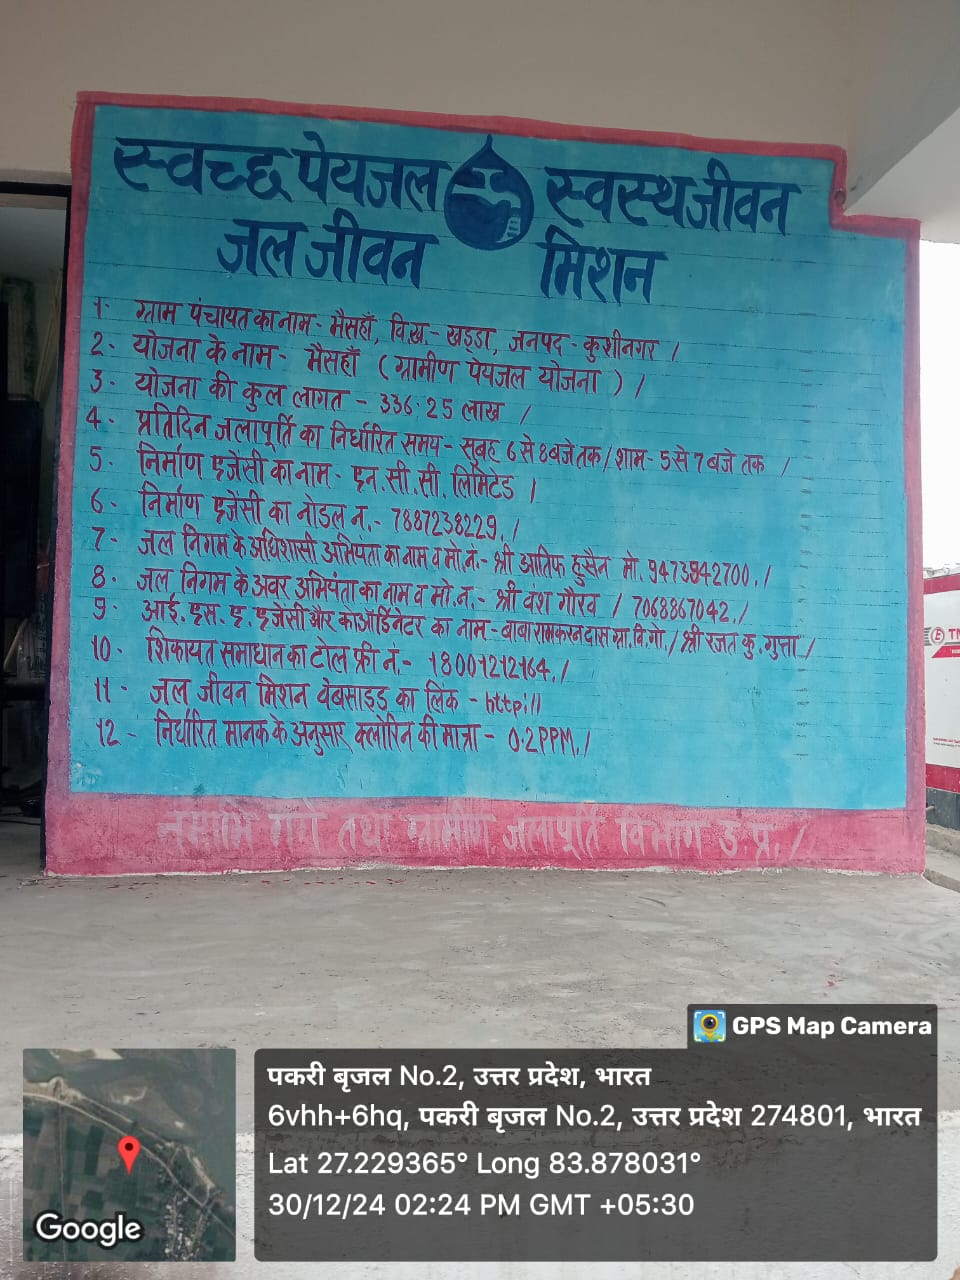 स्वच्छ पेयजल स्वस्थ जीवन
जल जीवन मिशन
1- ग्राम पंचायत का नाम- मैसहाँ, वि.ख.- खड्डा, जनपद- कुशीनगर /
2- योजना के नाम- मैसहाँ (ग्रामीण पेयजल योजना) /
3- योजना की कुल लागत - 336.25 लाख /
4- प्रतिदिन जलापूर्ति का निर्धारित समय- सुबह 6 से 8 बजे तक / शाम- 5 से 7 बजे तक /
5- निर्माण एजेंसी का नाम- एन.सी.सी. लिमिटेड /
6- निर्माण एजेंसी का नोडल न.- 7887238229. /
7- जल निगम के अधिशासी अभियंता का नाम व मो.नं.- श्री आतिफ हुसैन मो. 9473942700. /
8- जल निगम के अवर अभियंता का नाम व मो.न.- श्री वंश गौरव / 7068867042. /
9- आई.एस.ए. एजेंसी और काऑर्डिनेटर का नाम- बाबा रामकरन दास ग्रा.वि.गो. / श्री रजत कु. गुप्ता /
10- शिकायत समाधान का टोल फ्री नं.- 18001212164. /
11- जल जीवन मिशन वेबसाइड का लिंक - http://
12- निर्धारित मानक के अनुसार क्लोरिन की मात्रा- 0.2PPM. /
नमामि गंगे तथा ग्रामीण जलापूर्ति विभाग उ.प्र. /
GPS Map Camera
पकरी बृजल No.2, उत्तर प्रदेश, भारत
6vhh+6hq, पकरी बृजल No.2, उत्तर प्रदेश 274801, भारत
Lat 27.229365° Long 83.878031°
30/12/24 02:24 PM GMT +05:30
Google